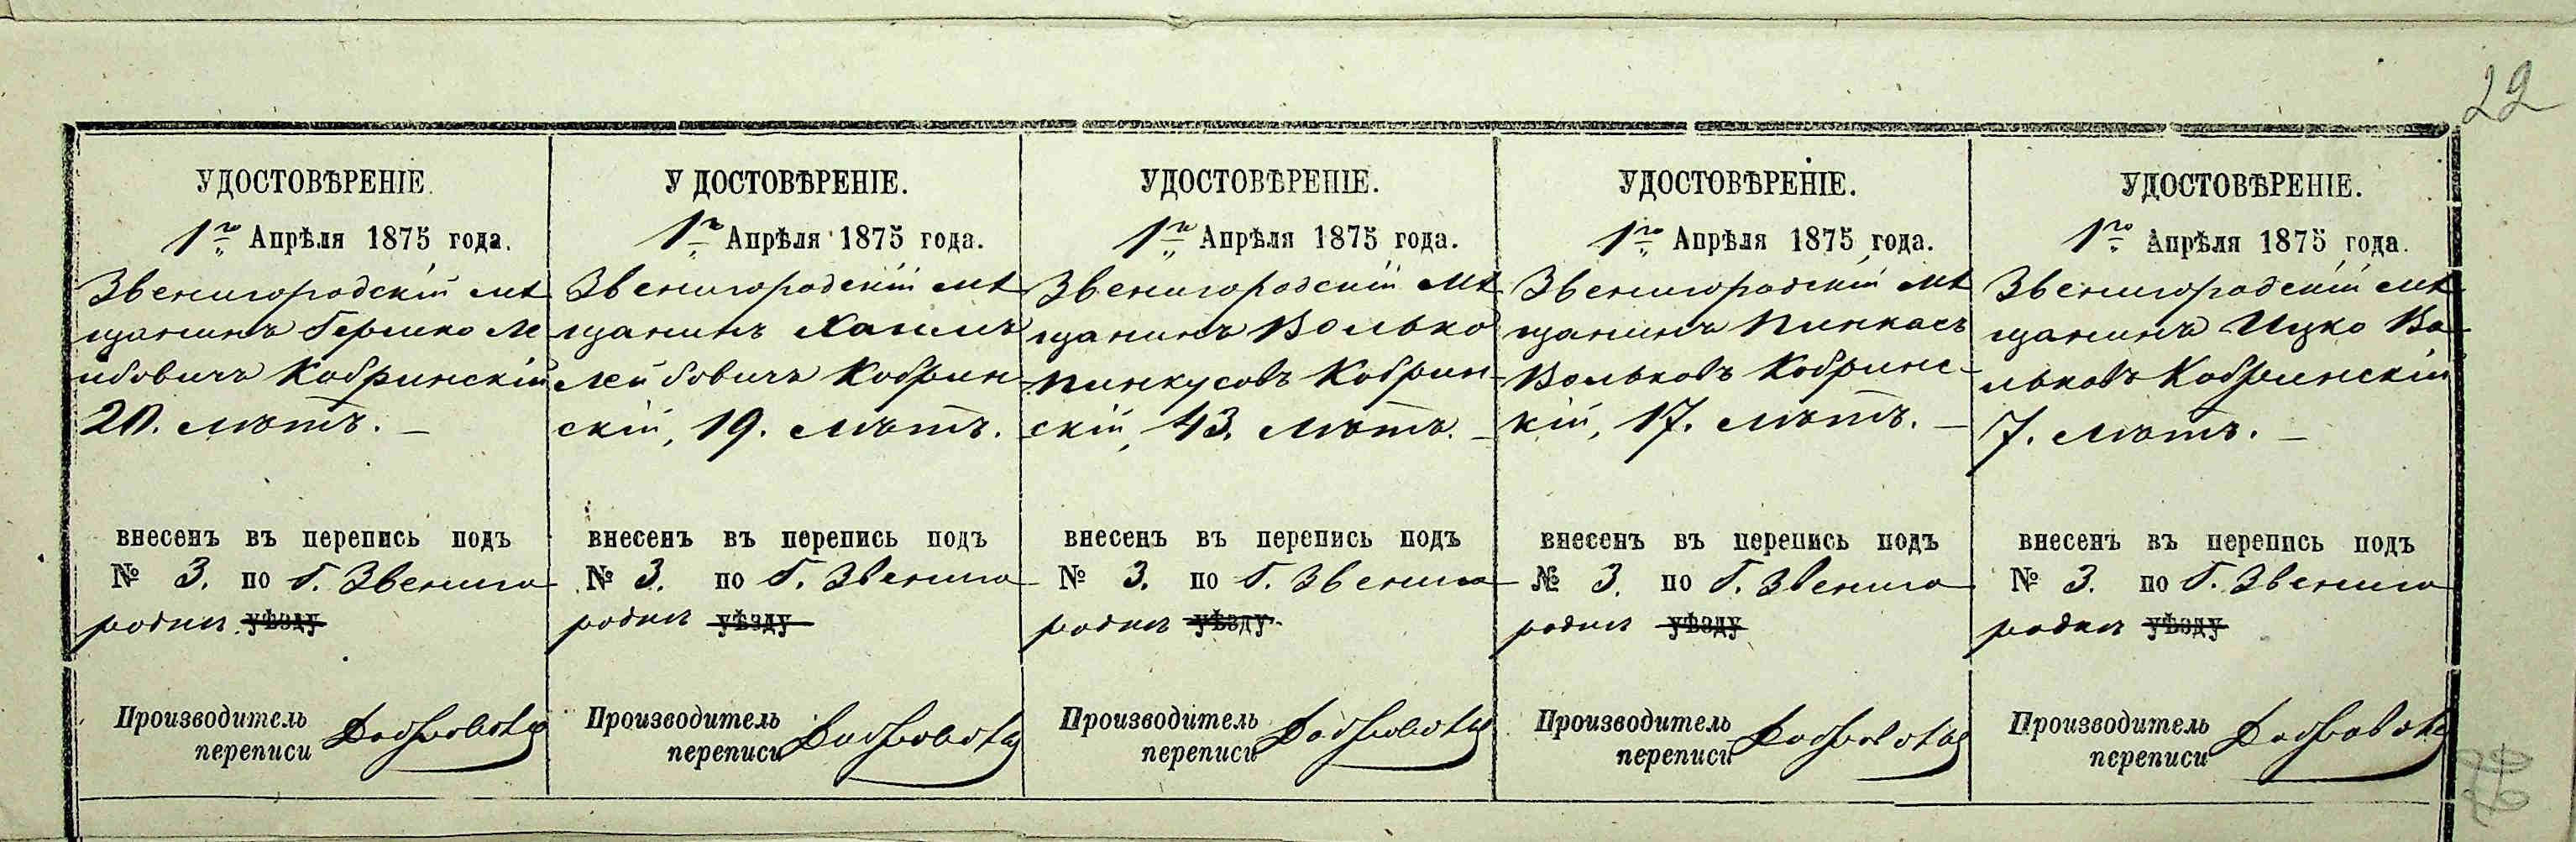 22
УДОСТОВѢРЕНІЕ.
1го Апрѣля 1875 года.
Звенигородскій мѣ
щанинъ Гершко Ле
йбовичъ Кобринскій
20. лѣтъ. —
внесенъ въ перепись подъ
№ 3. по Г. Звениго
родкѣ уѣзду
Производитель
переписи
УДОСТОВѢРЕНІЕ.
1го Апрѣля 1875 года.
Звенигородскій мѣ
щанинъ Хаимъ
Лейбовичъ Кобрин-
скій, 19. лѣтъ.
внесенъ въ перепись подъ
№ 3. по Г. Звениго
родкѣ уѣзду
Производитель
переписи
УДОСТОВѢРЕНІЕ.
1го Апрѣля 1875 года.
Звенигородскій мѣ
щанинъ Волько
Пинкусовъ Кобрин-
скій, 43. лѣтъ. —
внесенъ въ перепись подъ
№ 3. по Г. Звениго
родкѣ уѣзду
Производитель
переписи
УДОСТОВѢРЕНІЕ.
1го Апрѣля 1875 года.
Звенигородскій мѣ
щанинъ Пинкасъ
Вольковъ Кобринс-
кій, 17. лѣтъ. —
внесенъ въ перепись подъ
№ 3. по Г. Звениго
родкѣ уѣзду
Производитель
переписи
УДОСТОВѢРЕНІЕ.
1го Апрѣля 1875 года.
Звенигородскій мѣ
щанинъ Ицко Во-
льковъ Кобринскій
7. лѣтъ. —
внесенъ въ перепись подъ
№ 3. по Г. Звениго
родкѣ уѣзду
Производитель
переписи